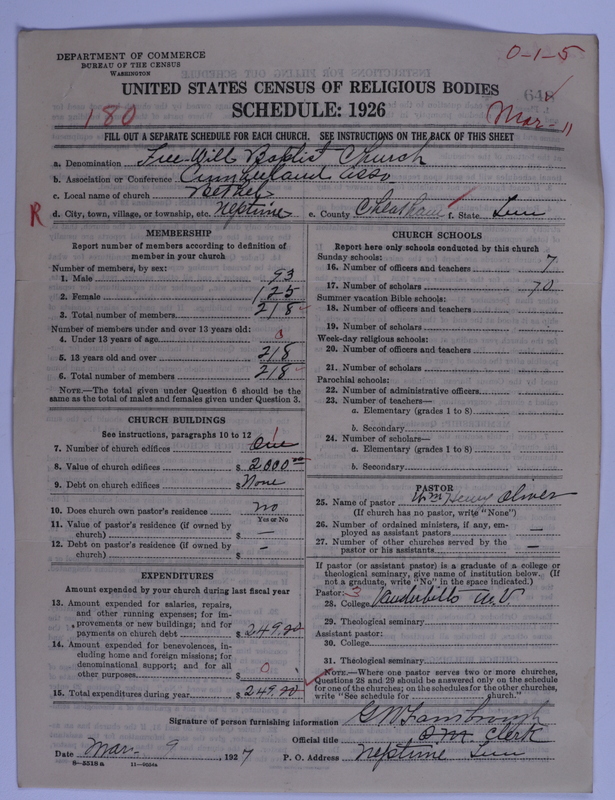 DEPARTMENT OF COMMERCE
BUREAU OF THE CENSUS
WASHINGTON
0-1-5
UNITED STATES CENSUS OF RELIGIOUS BODIES
180
SCHEDULE: 1926
Mar- 11
FILL OUT A SEPARATE SCHEDULE FOR EACH CHURCH. SEE INSTRUCTIONS ON THE BACK OF THIS SHEET
a. Denomination Free Will Baptist Church
b. Association or Conference Cumberland Asso
c. Local name of church Bethel
R d. City, town, village, or township, etc. Neptune e. County Cheatham f. State Tenn
MEMBERSHIP
Report number of members according to definition of
member in your church
Number of members, by sex:
1. Male 93
2. Female 125
3. Total number of members 218
Number of members under and over 13 years old:
4. Under 13 years of age 0
5. 13 years old and over 218
6. Total number of members 218
NOTE.—The total given under Question 6 should be
the same as the total of males and females given under Question 3.
CHURCH BUILDINGS
See instructions, paragraphs 10 to 12
7. Number of church edifices One
8. Value of church edifices $ 2000 00
9. Debt on church edifices $ None
10. Does church own pastor's residence? no
Yes or No
11. Value of pastor's residence (if owned by
church) $ —
12. Debt on pastor's residence (if owned by
church) $ -
EXPENDITURES
Amount expended by your church during last fiscal year
13. Amount expended for salaries, repairs,
and other running expenses; for im-
provements or new buildings; and for
payments on church debt $ 249.20
14. Amount expended for benevolences, in-
cluding home and foreign missions; for
denominational support; and for all
other purposes $ 0
15. Total expenditures during year $ 249.20
CHURCH SCHOOLS
Report here only schools conducted by this church
Sunday schools:
16. Number of officers and teachers 7
17. Number of scholars 70
Summer vacation Bible schools:
18. Number of officers and teachers
19. Number of scholars
Week-day religious schools:
20. Number of officers and teachers
21. Number of scholars
Parochial schools:
22. Number of administrative officers
23. Number of teachers—
a. Elementary (grades 1 to 8)
b. Secondary
24. Number of scholars—
a. Elementary (grades 1 to 8)
b. Secondary
PASTOR
25. Name of pastor Wm Henry Oliver
(If church has no pastor, write "None")
26. Number of ordained ministers, if any, em-
ployed as assistant pastors —
27. Number of other churches served by the
pastor or his assistants —
If pastor (or assistant pastor) is a graduate of a college or
theological seminary, give name of institution below. (If
not a graduate, write "No" in the space indicated.)
Pastor: 3
28. College Vanderbilt
29. Theological seminary
Assistant pastor:
30. College
31. Theological seminary
NOTE.—Where one pastor serves two or more churches,
Questions 28 and 29 should be answered only on the schedule
for one of the churches; on the schedules for the other churches,
write "See schedule for church."
Signature of person furnishing information G W Fambrough
Official title Clerk
Date Mar- 9 1927 P. O. Address Neptune Tenn
8-5518 a 11-9054a